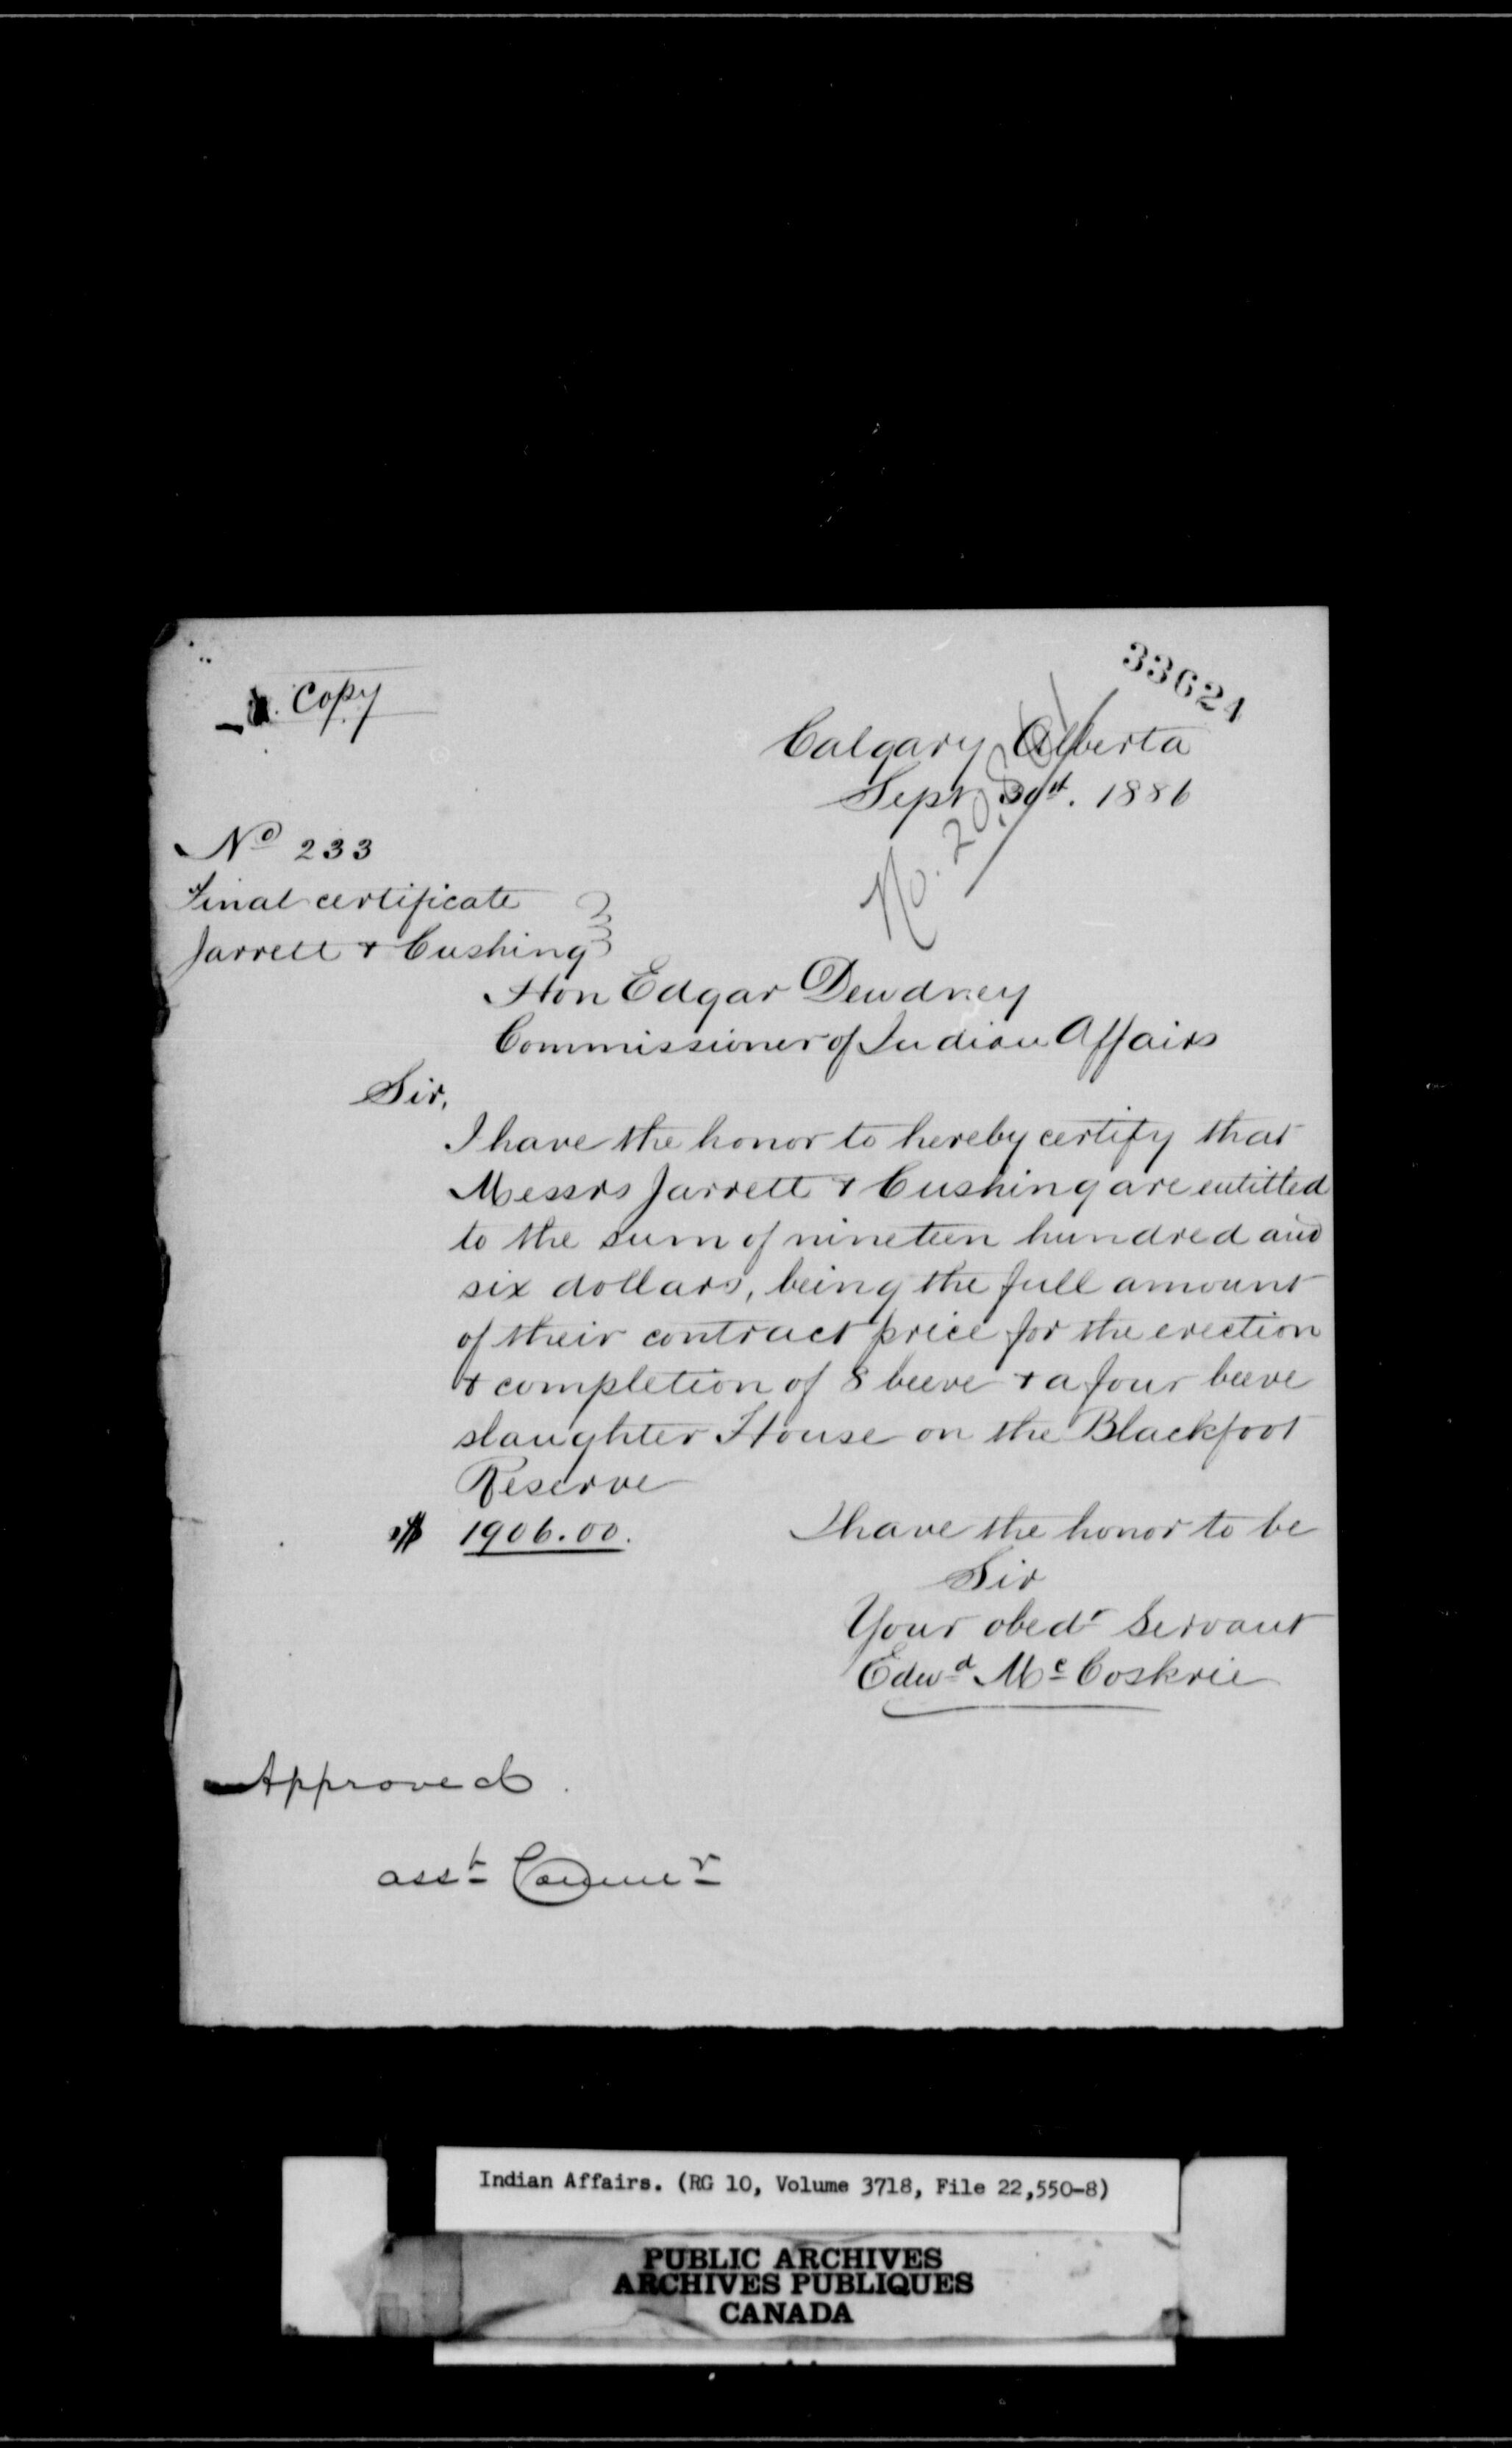 Copy
33621
Calgary Alberta
Sept. 30th. 1886
No 233
Final certificate
Jarrett & Cushing
No. 20
Hon Edgar Dewdney
Commissioner of Indian Affairs
Sir,
I have the honor to hereby certify that
Messrs Jarrett & Cushing are entitled
to the sum of nineteen hundred and
six dollars, being the full amount
of their contract price for the erection
& completion of 8 beeve & a four beeve
slaughter House on the Blackfoot
Reserve
$ 1906.00.
I have the honor to be
Sir
Your obedt Servant
Edwd McCoskrie
Approved.
asst Commr
Indian Affairs. (RG 10, Volume 3718, File 22,550-8)
PUBLIC ARCHIVES
ARCHIVES PUBLIQUES
CANADA